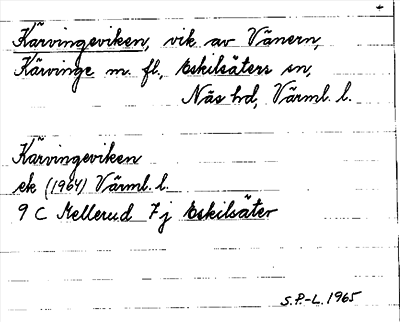 +
Kärvingeviken, vik av Vänern,
Kärvinge m. fl., Eskilsäters sn,
Näs hd, Värml. l.
Kärvingeviken
ek (1964) Värml. l.
9 C Mellerud 7 j Eskilsäter
S.P.-L. 1965